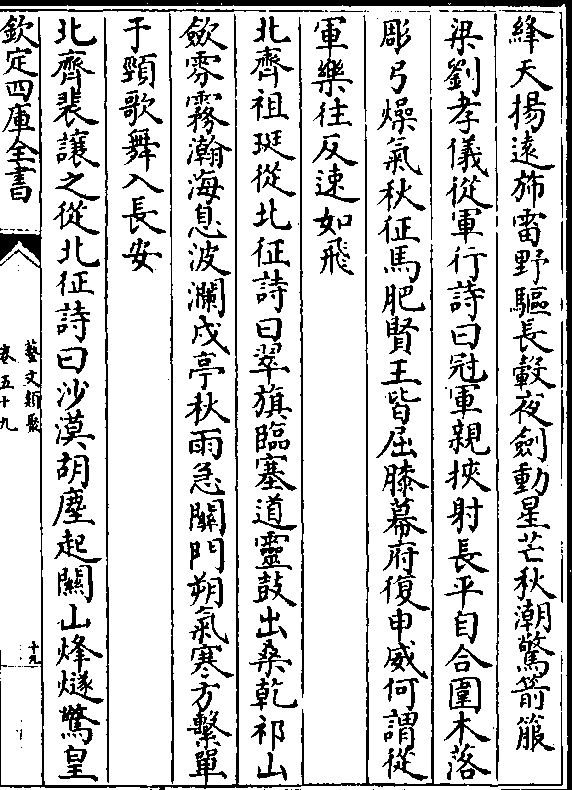 絳天揚遠斾雷野驅長轂夜劍動星芒秋潮驚箭服
梁劉孝儀從軍行詩曰冠軍親挾射長平自合圍木落
彫弓燥氣秋征馬肥賢王皆屈膝幕府復申威何謂從
軍樂往反速如飛
北齊祖珽從北征詩曰翠旗臨塞道靈鼓出桑乾祁山
斂雰霧瀚海息波瀾戍亭秋雨急關門朔氣寒方繫單
于頸歌舞入長安
北齊裴讓之從北征詩曰沙漠胡塵起關山烽燧驚皇
欽定四庫全書
藝文類聚
卷五十九
十九